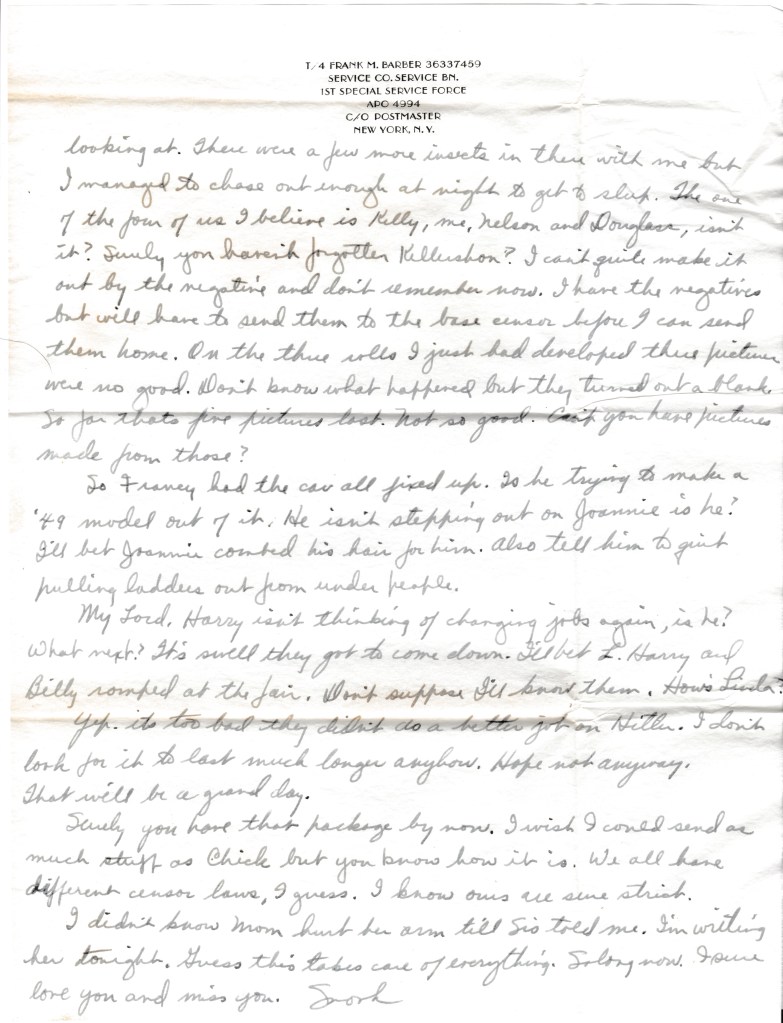 T/4 FRANK M. BARBER 36337459
SERVICE CO. SERVICE BN.
1ST SPECIAL SERVICE FORCE
APO 4994
C/O POSTMASTER
NEW YORK, N. Y.
looking at. There were a few more insects in there with me but
I managed to chase out enough at night to get to sleep. The one
of the four of us I believe is Kelly, me, Nelson and Douglass, isn't
it? Surely you haven't forgotten Killushon? I can't quite make it
out by the negative and don't remember now. I have the negatives
but will have to send them to the base censor before I can send
them home. On the three rolls I just had developed three pictures
were no good. Don't know what happened but they turned out a blank.
So far thats five pictures lost. Not so good. Can't you have pictures
made from those?
So Francy had the car all fixed up. Is he trying to make a
'49 model out of it. He isn't stepping out on Joannie is he?
I'll bet Joannie combed his hair for him. Also tell him to quit
pulling ladders out from under people.
My Lord, Harry isn't thinking of changing jobs again, is he?
What next? It's swell they got to come down. I'll bet L. Harry and
Billy romped at the fair. Don't suppose I'll know them. How's Linda?
Yep. its too bad they didn't do a better job on Hitler. I don't
look for it to last much longer anyhow. Hope not anyway.
That will be a grand day.
Surely you have that package by now. I wish I could send as
much stuff as Chick but you know how it is. We all have
different censor laws, I guess. I know ours are sure strict.
I didn't know Mom hurt her arm till Sis told me. I'm writing
her tonight. Guess this takes care of everything. So long now. I sure
love you and miss you. Snork